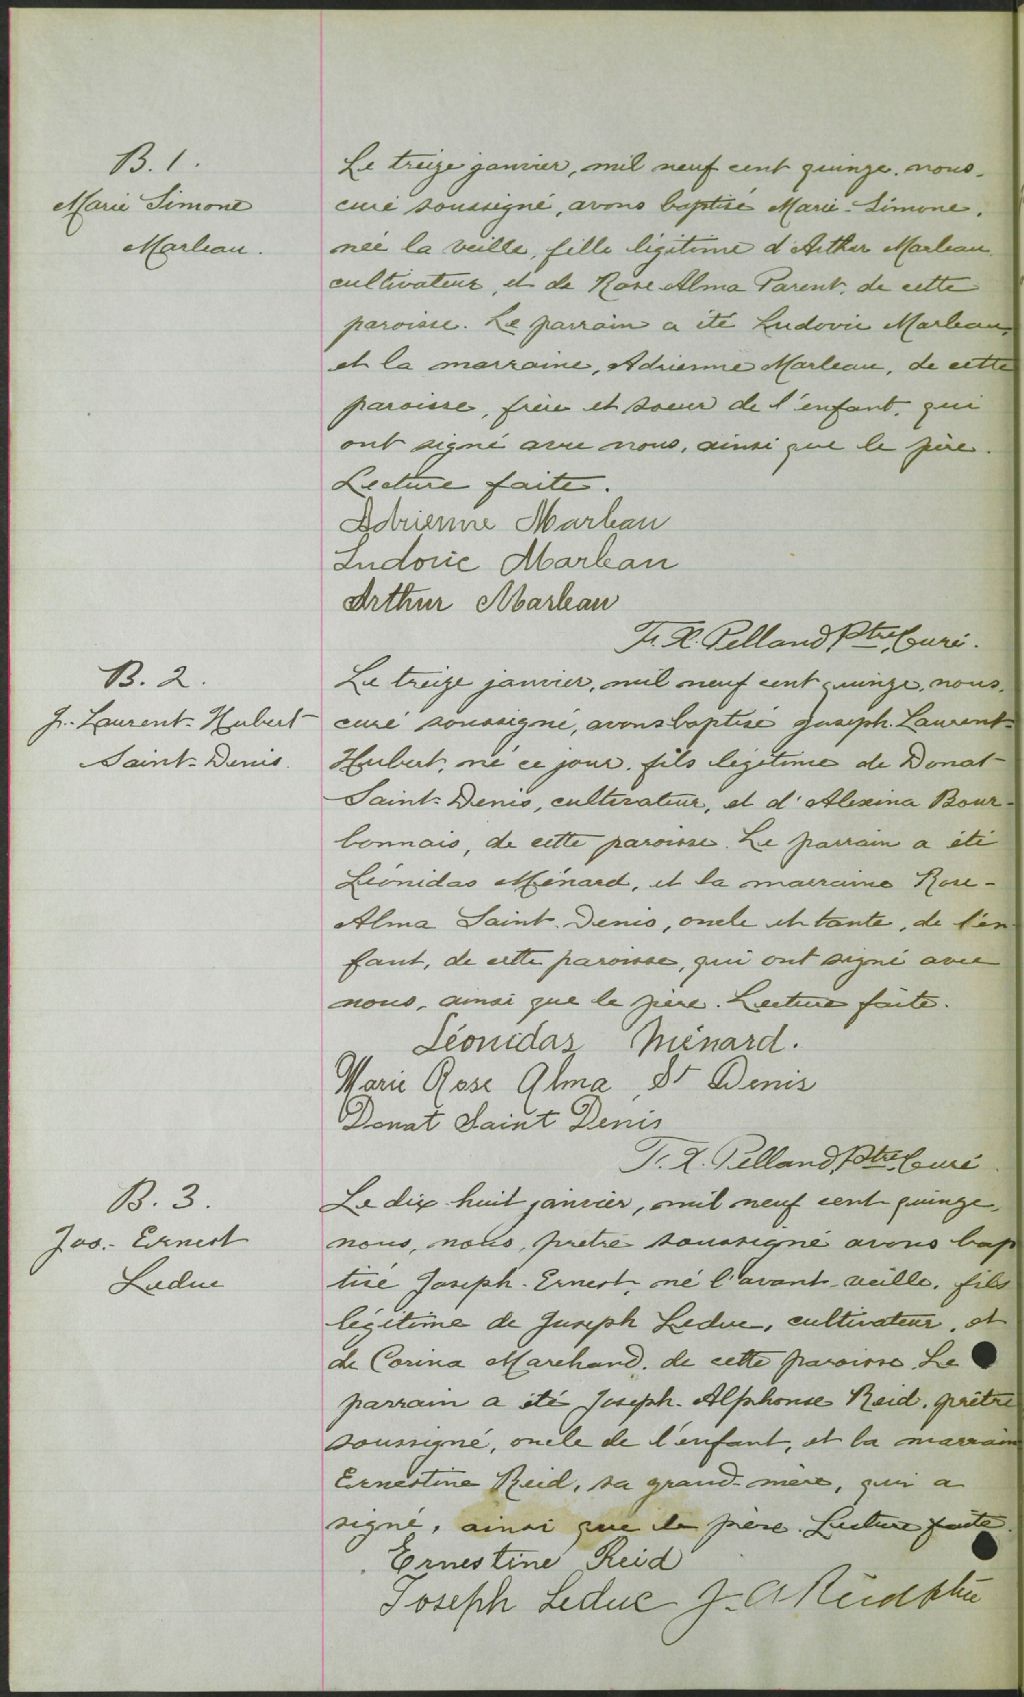 B. 1.
Marie Simone
Marleau.
Le treize janvier, mil neuf cent quinze, nous,
curé soussigné, avons baptisé Marie-Simone,
née la veille, fille légitime d'Arthur Marleau
cultivateur, et de Rose-Alma Parent, de cette
paroisse. Le parrain a été Ludovic Marleau,
et la marraine, Adrienne Marleau, de cette
paroisse, frère et soeur de l'enfant, qui
ont signé avec nous, ainsi que le père.
Lecture faite.
Adrienne Marleau
Ludovic Marleau
Arthur Marleau
F. X. Pelland Ptre, Curé.
B. 2.
J.-Laurent-Hubert
Saint-Denis.
Le treize janvier, mil neuf cent quinze, nous,
curé soussigné, avons baptisé Joseph-Laurent-
Hubert, né ce jour, fils légitime de Donat
Saint-Denis, cultivateur, et d'Alexina Bour-
bonnais, de cette paroisse. Le parrain a été
Léonidas Ménard, et la marraine Rose-
Alma Saint-Denis, oncle et tante, de l'en-
fant, de cette paroisse, qui ont signé avec
nous, ainsi que le père. Lecture faite.
Léonidas Ménard.
Marie Rose Alma St Denis
Donat Saint Denis
F. X. Pelland, Ptre, Curé
B. 3.
Jos.-Ernest
Leduc
Le dix-huit janvier, mil neuf cent quinze,
nous, nous, prêtre soussigné avons bap
tisé Joseph-Ernest, né l'avant-veille, fils
légitime de Joseph Leduc, cultivateur, et
de Corina Marchand, de cette paroisse. Le
parrain a été Joseph-Alphonse Reid, prêtre
soussigné, oncle de l'enfant, et la marraine
Ernestine Reid, sa grand-mère, qui a
signé, ainsi que le père. Lecture faite.
Ernestine Reid
Joseph Leduc J. A Reid ptre